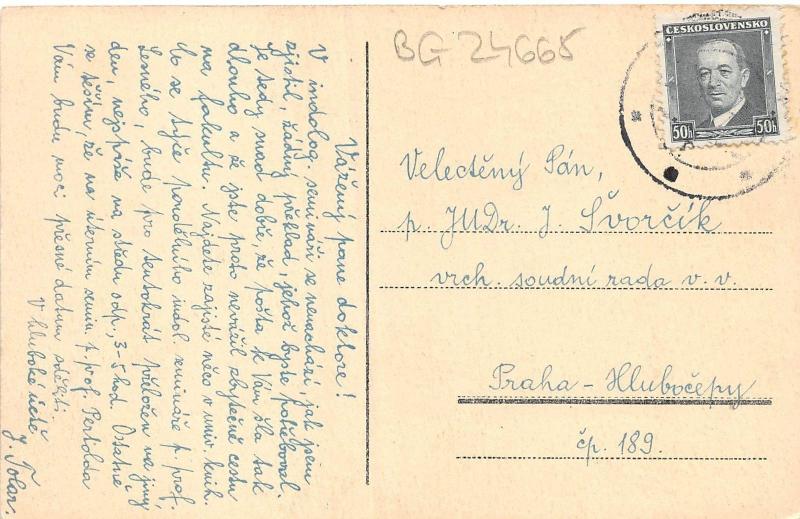 BG 24665
ČESKOSLOVENSKO
50h 50h
Vážený pane doktore!
V indolog. semináři se nenachází, jak jsem
zjistil, žádný překlad, jehož byste potřeboval.
Je tedy snad dobře, že pošta k Vám šla tak
dlouho a že jste proto nevážil zbytečně cestu
na fakultu. Najdete zajisté něco v univ. knih.
Co se týče pondělního indol. semináře p. prof.
Lesného, bude pro tentokrát přeložen na jiný
den, nejspíše na středu odp., 3-5 hod. Ostatně
se těším, že na úterním semin. p. prof. Pertolda
Vám budu moci přesné datum sděliti.
V hluboké úctě
J. Tolar.
Velectěný Pán,
p. JUDr. J. Švorčík
vrch. soudní rada v. v.
Praha-Hlubočepy
čp. 189.